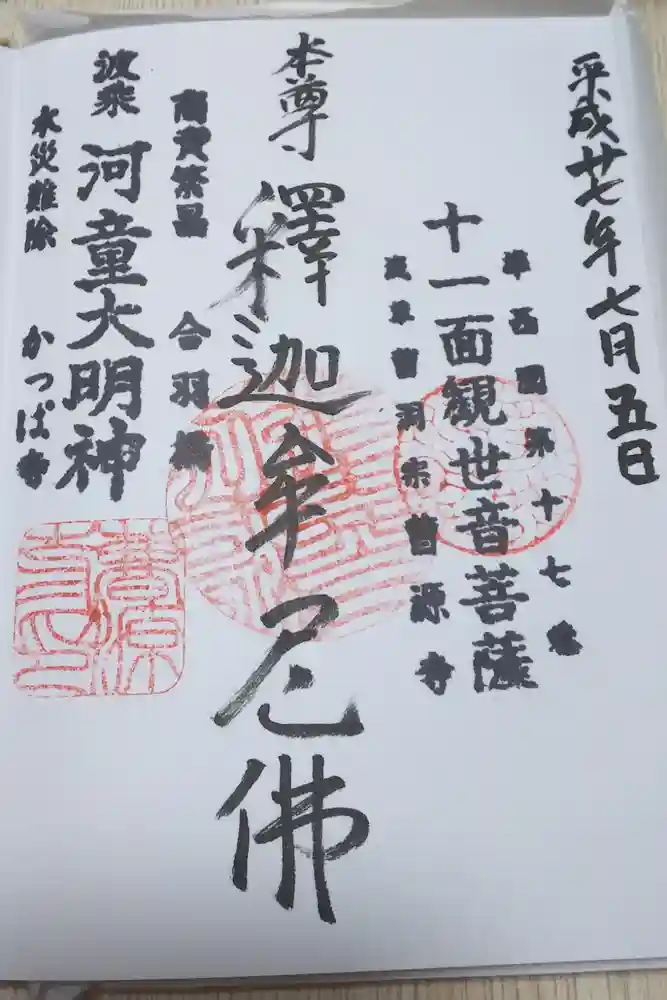 平成廿七年七月五日
準西國第十七番
十一面観世音菩薩
浅草曹洞宗曹源寺
本尊 釋迦牟尼佛
商賣繁昌 合羽橋
波乗 河童大明神
水災難除 かっぱ寺